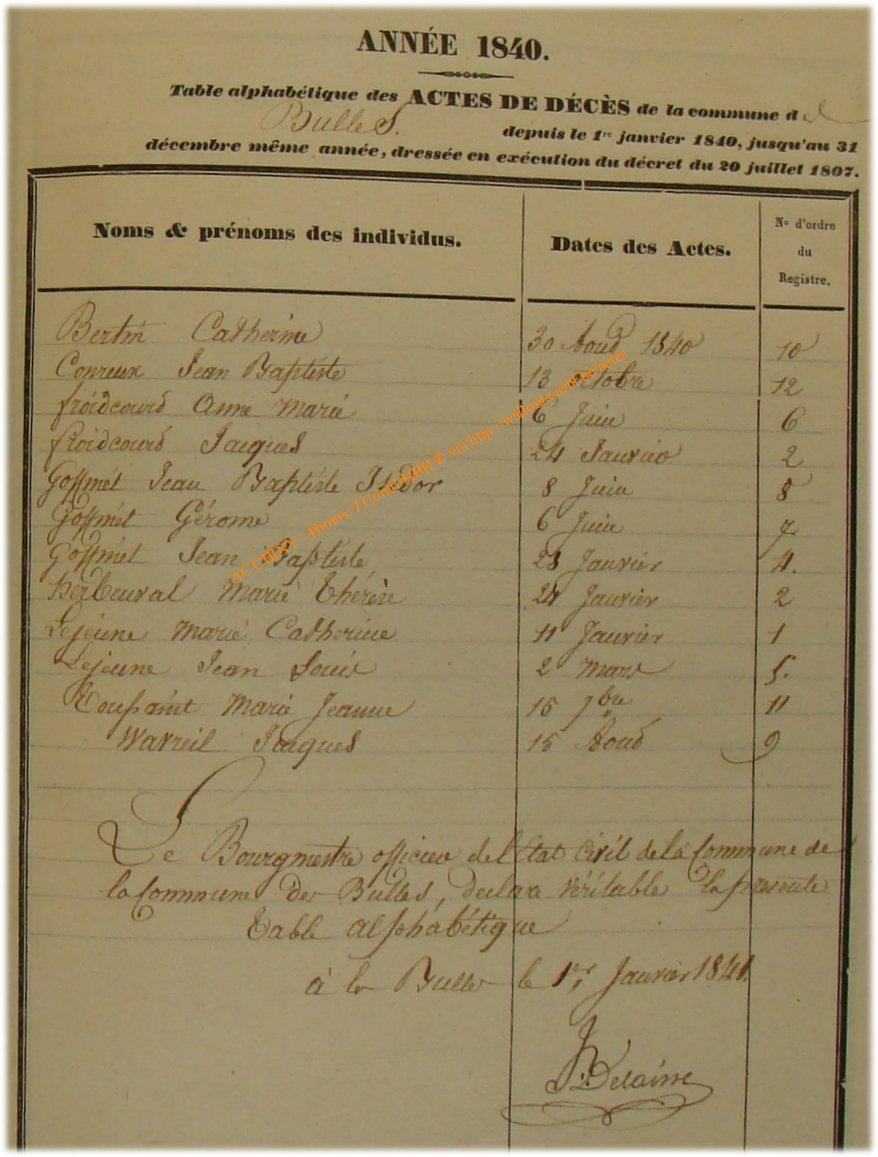 ANNÉE 1840.
Table alphabétique des ACTES DE DÉCÈS de la commune de
Bulles. depuis le 1re janvier 1840, jusqu'au 31
décembre même année, dressée en exécution du décret du 20 juillet 1807.
Noms & prénoms des individus. Dates des Actes. No d'ordre du Registre.
Bertin Catherine 30 Aoud 1840 10
Conreux Jean Baptiste 13 octobre 12
froidcourd Anne Marie 6 Juin 6
froidcourd Jacques 24 Janvier 2
Goffinet Jean Baptiste Isidor 8 Juin 8
Goffinet Gérome 6 Juin 7
Goffinet Jean Baptiste 28 Janvier 4.
Herbeuval Marie Thérèse 24 Janvier 2
Lejeune Marie Catherine 11 Janvier 1
Lejeune Jean Louis 2 Mars 5.
Toussaint Marie Jeanne 15 7bre 11
Wavreil Jacques 15 Aoud 9
Le Bourgmestre officier de l'Etat Civil de la Commune de
la Commune de Bulles, declare véritable la presente
table alphabétique
à les Bulles le 1er Janvier 1841.
Delaisse
AC CHINY - Photos J.Collet via http://